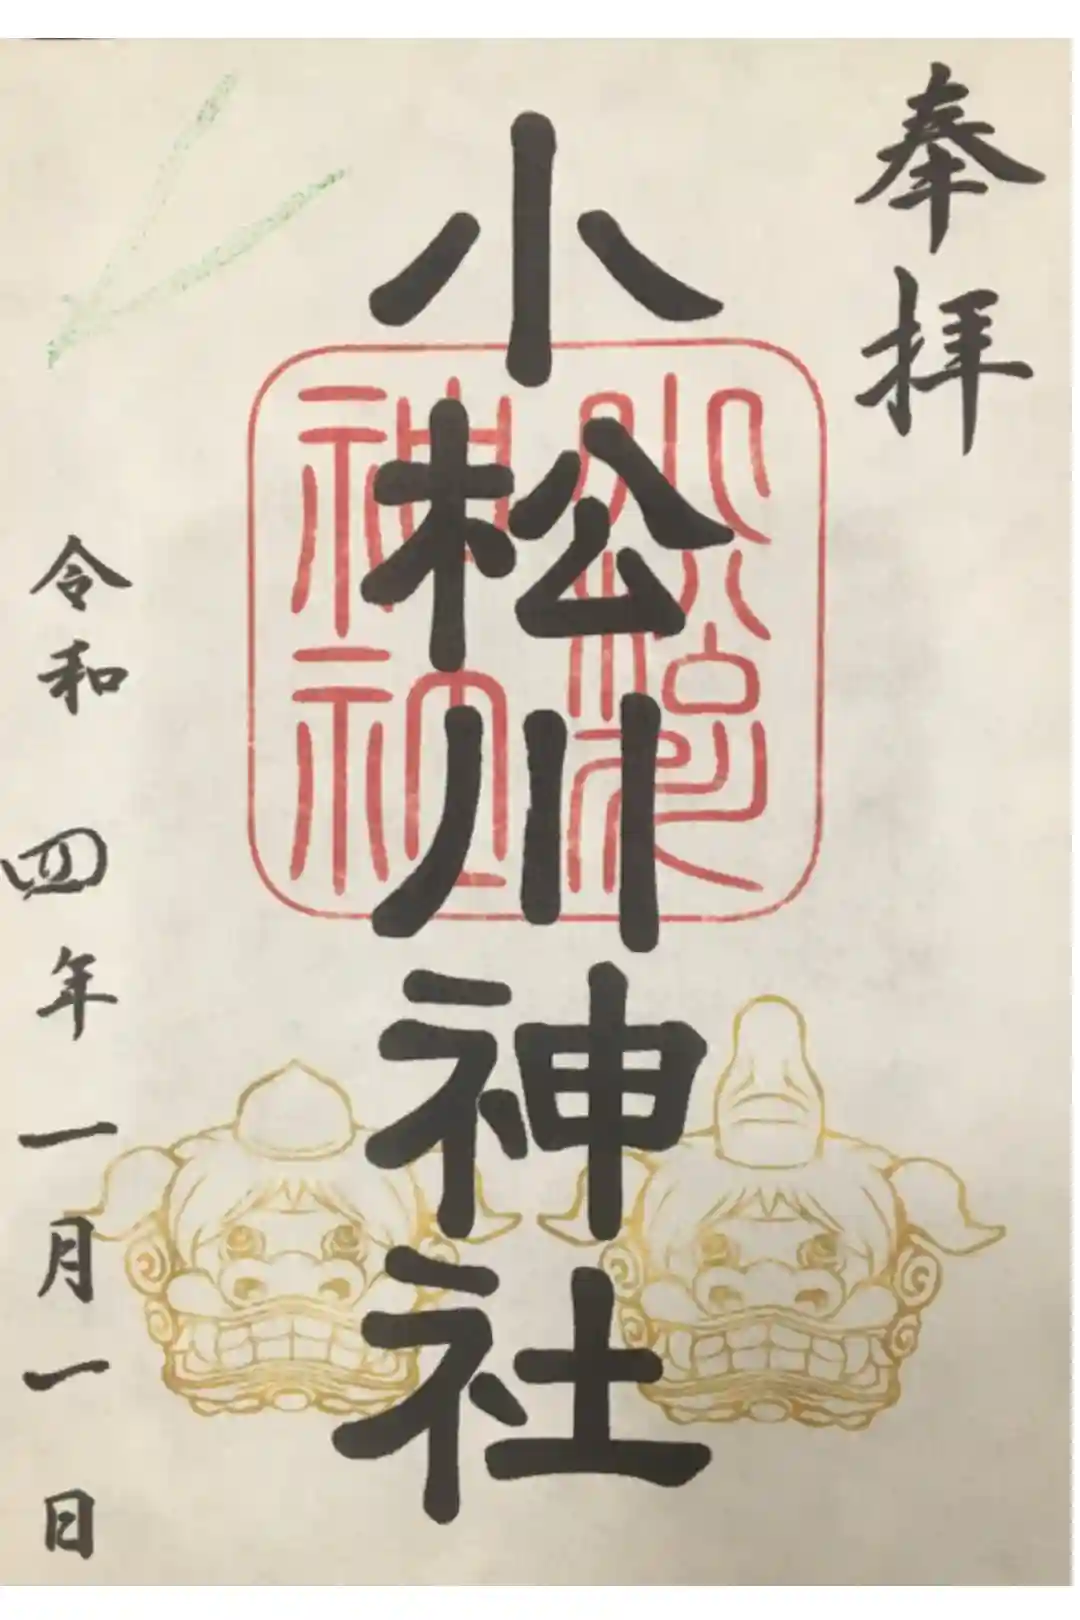 奉拝
小松川神社
小松川神社
令和四年一月一日